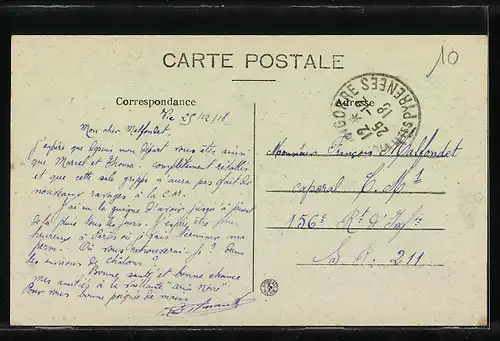 10
CARTE POSTALE
Correspondance
Adresse
BIGORRE
12 *
25 - 12
18
PYRÉNÉES
Vic 25/12/18
Mon cher Malfondet
J'espère que depuis mon départ vous êtes ainsi
que Marcel et complètement rétablis
et que cette sale grippe n'aura pas fait de
nouveaux ravages à la C.M.
J'ai eu la guigne d'avoir jusqu'à présent
de la pluie tous les jours. J'espère être plus
heureux à Paris où je vais terminer ma
perm. Où vous retrouverai-je ? Dans
les environs de Châlons ?
Bonne santé et bonne chance
mes amitiés à la vaillante
Pour vous bonne poignée de mains
Monsieur François Malfondet
caporal C. Mt
156e Rt d'Infie
S. P. 211